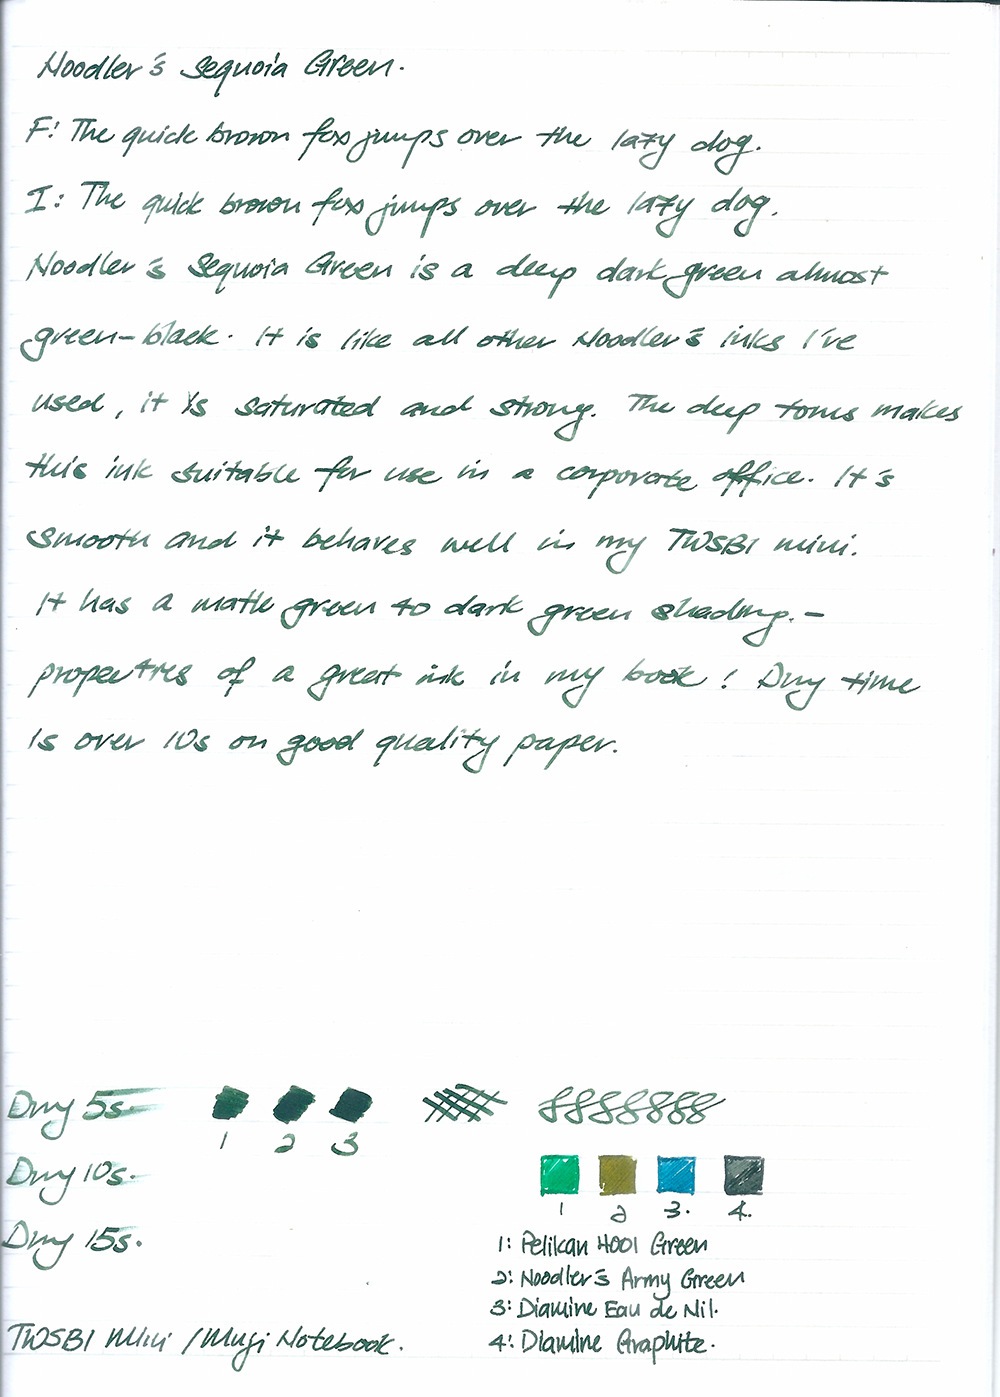 Noodler's Sequoia Green.
F: The quick brown fox jumps over the lazy dog.
I: The quick brown fox jumps over the lazy dog.
Noodler's Sequoia Green is a deep dark green almost
green-black. It is like all other Noodler's inks I've
used, it is saturated and strong. The deep tones makes
this ink suitable for use in a corporate office. It's
smooth and it behaves well in my TWSBI mini.
It has a matte green to dark green shading. -
properties of a great ink in my book! Dry time
is over 10s on good quality paper.
Dry 5s.
1 2 3
Dry 10s.
Dry 15s.
TWSBI Mini / Muji Notebook.
1 2 3. 4.
1: Pelikan 4001 Green
2: Noodler's Army Green
3: Diamine Eau de Nil.
4: Diamine Graphite.